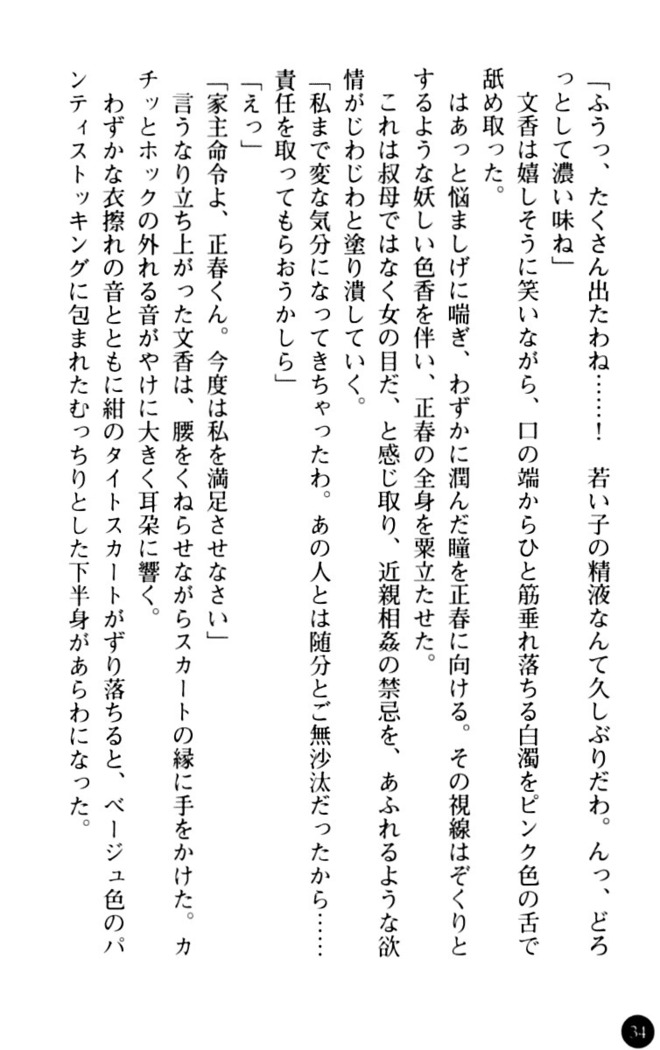 「ふうっ、たくさん出たわね……！　若い子の精液なんて久しぶりだわ。んっ、どろ
っとして濃い味ね」
　文香は嬉しそうに笑いながら、口の端からひと筋垂れ落ちる白濁をピンク色の舌で
舐め取った。
　はあっと悩ましげに喘ぎ、わずかに潤んだ瞳を正春に向ける。その視線はぞくりと
するような妖しい色香を伴い、正春の全身を粟立たせた。
　これは叔母ではなく女の目だ、と感じ取り、近親相姦の禁忌を、あふれるような欲
情がじわじわと塗り潰していく。
「私まで変な気分になってきちゃったわ。あの人とは随分とご無沙汰だったから……
責任を取ってもらおうかしら」
「えっ」
「家主命令よ、正春くん。今度は私を満足させなさい」
　言うなり立ち上がった文香は、腰をくねらせながらスカートの縁に手をかけた。カ
チッとホックの外れる音がやけに大きく耳朶に響く。
　わずかな衣擦れの音とともに紺のタイトスカートがずり落ちると、ベージュ色のパ
ンティストッキングに包まれたむっちりとした下半身があらわになった。
34